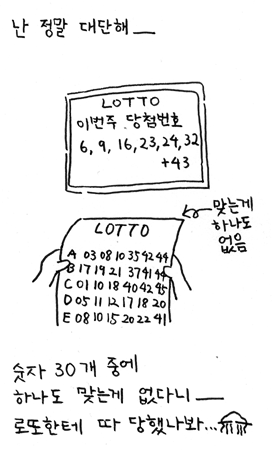 난 정말 대단해__
LOTTO
이번주 당첨번호
6, 9, 16, 23, 24, 32
+43
맞는게
하나도
없음
LOTTO
A 03 08 10 35 42 44
B 17 19 21 37 41 44
C 01 10 18 40 42 45
D 05 11 12 17 18 20
E 08 10 15 20 22 41
숫자 30개 중에
하나도 맞는게 없다니__
로또한테 따 당했나봐...